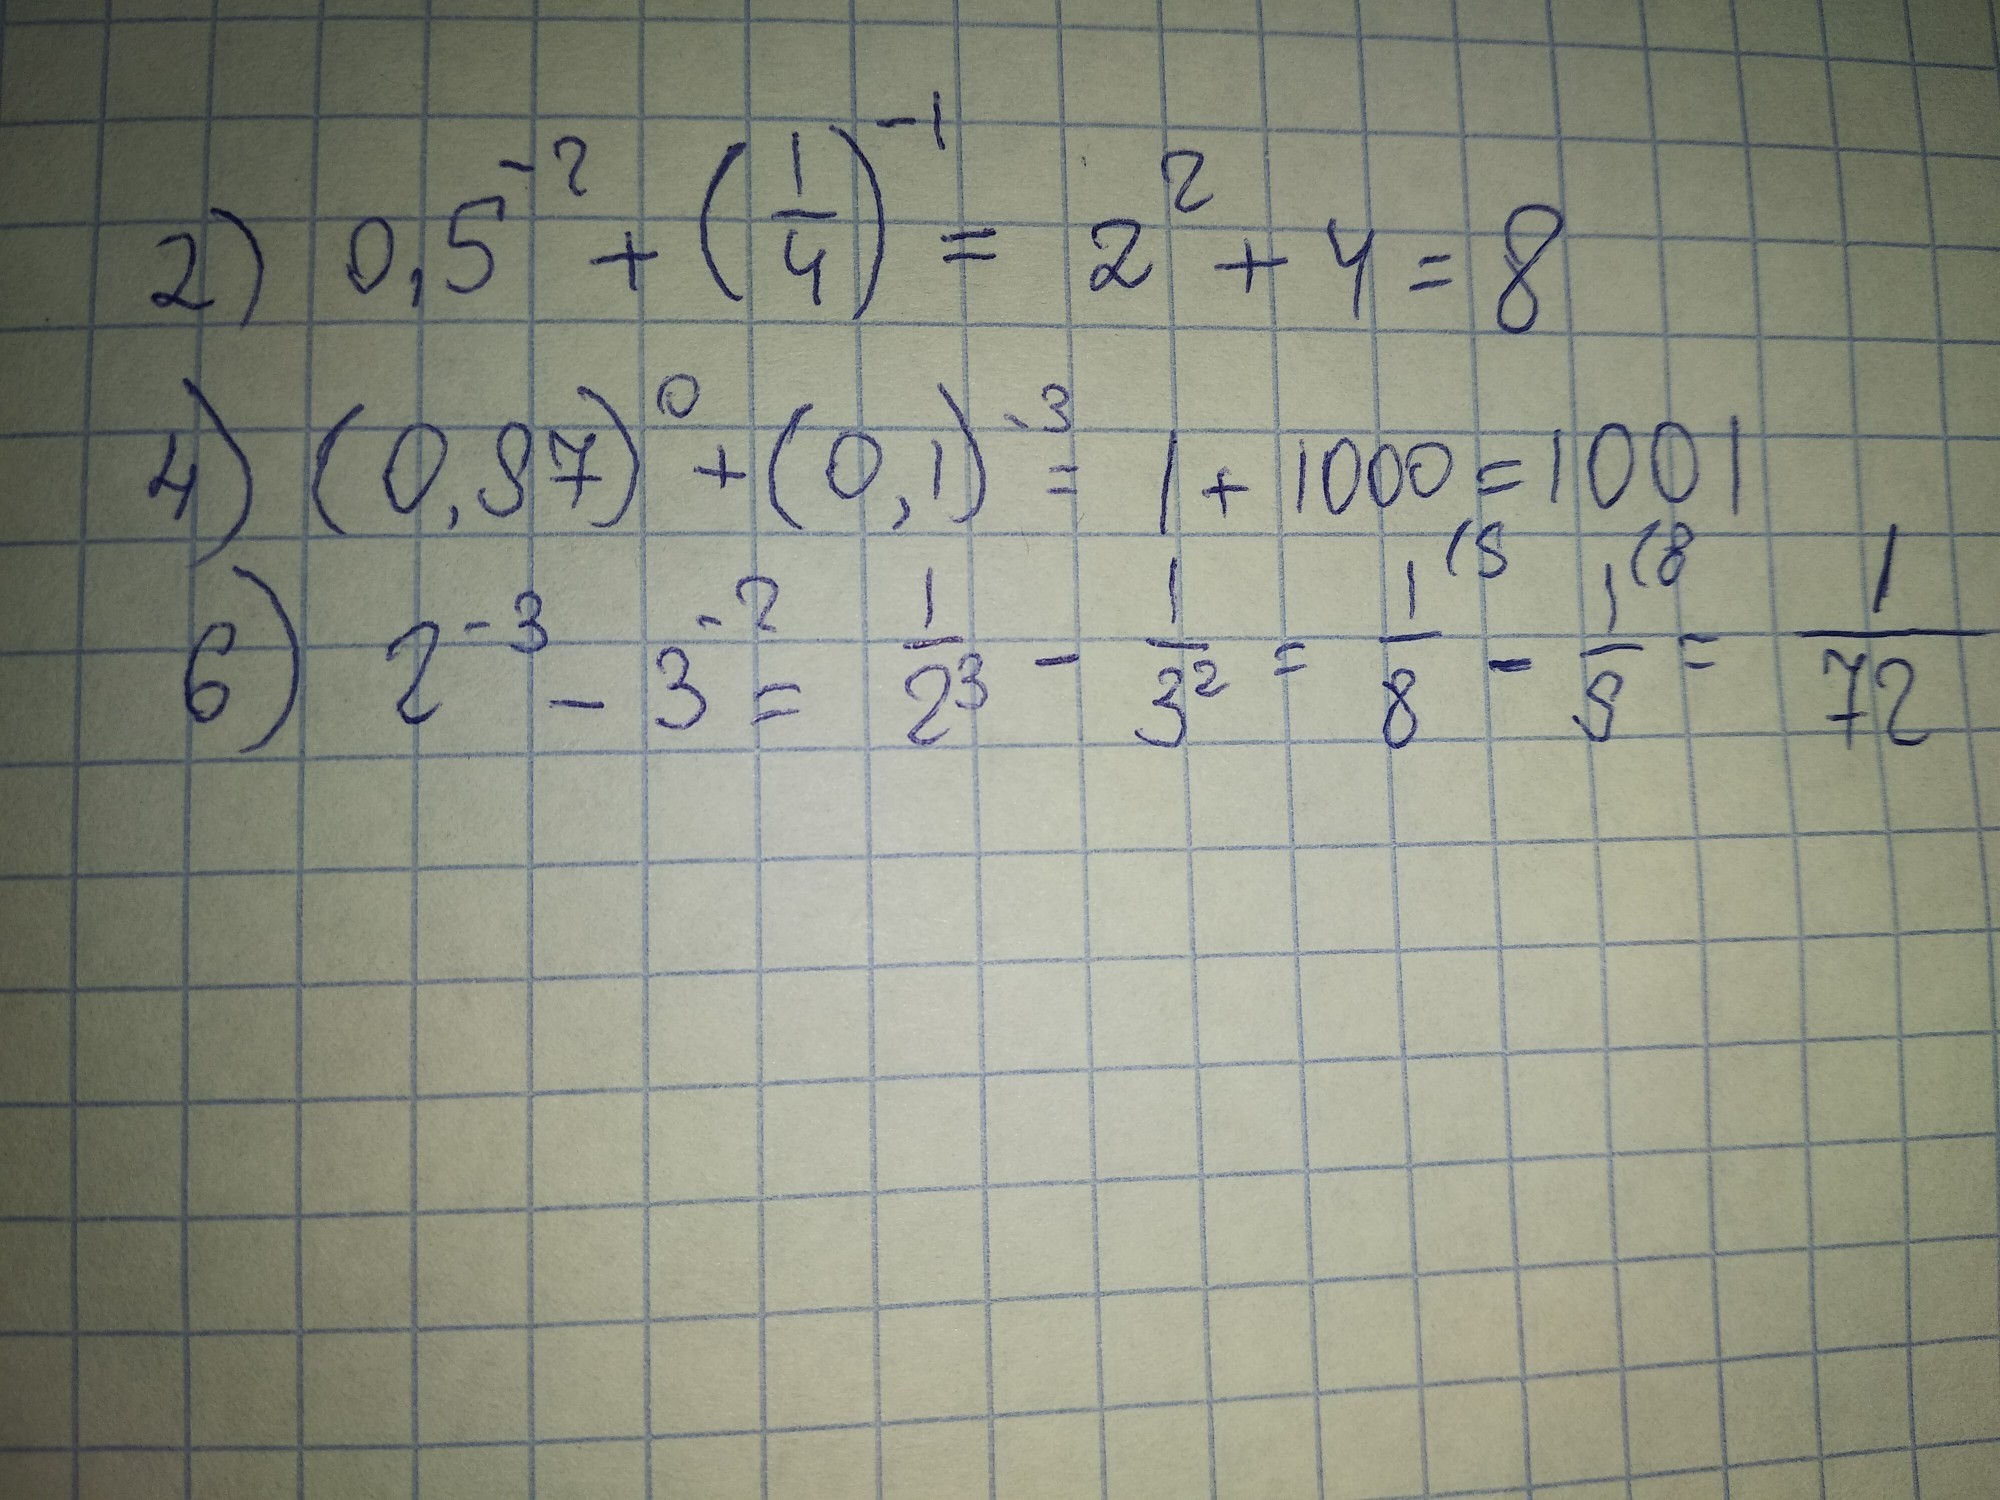 2) 0,5⁻² + (1/4)⁻¹ = 2² + 4 = 8
4) (0,97)⁰ + (0,1)⁻³ = 1 + 1000 = 1001
6) 2⁻³ - 3⁻² = 1/2³ - 1/3² = 1/8 (9 - 1/9 (8 = 1/72